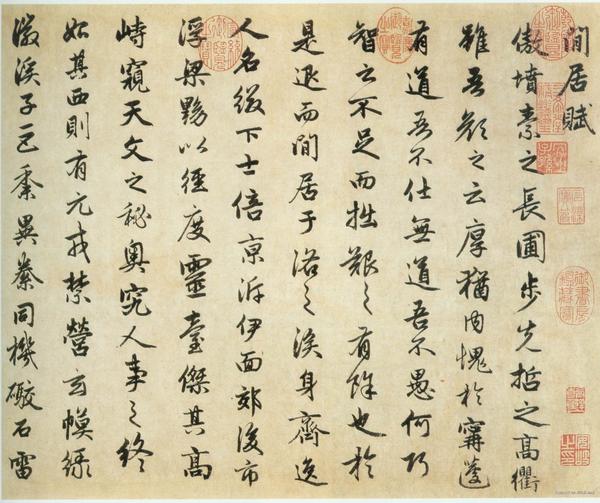 閒居賦
傲墳素之長圃步先哲之高衢
雖吾顏之云厚猶內愧於甯蘧
有道吾不仕無道吾不愚何巧
智之不足而拙艱之有餘也於
是退而閒居于洛之涘身齊逸
人名綴下士倍京泝伊面郊後市
浮梁黝以徑度靈臺傑其高
峙窺天文之秘奧究人事之終
始其西則有元戎禁營玄幙綠
徽溪子巨黍異絭同機礮石雷